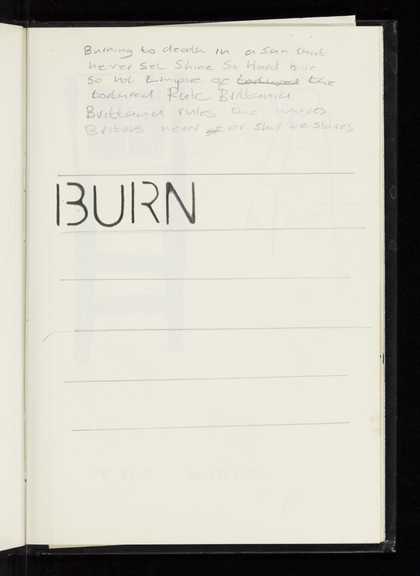 Burning to death in a Sun that
never set Shine So Hard burn
So hot Empire of tortured the
tortured Rule Brittania
Brittania rules the waves
Britons never or shal be slaves
BURN